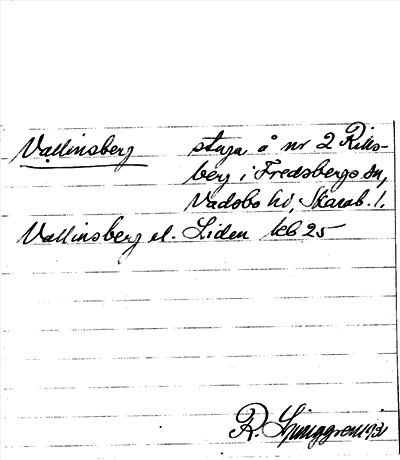 Vallinsberg stuga å nr 2 Riks-
berg i Fredsbergs sn,
Vadsbo hd, Skarab. l.
Vallinsberg el. Liden kb 25
R. Ljunggren 1931